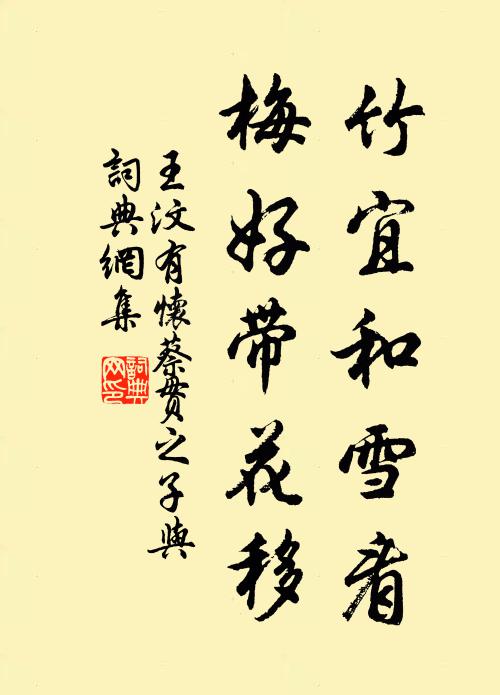 竹宜和雪看
梅好帶花移
王汶有懷蔡貫之子與
詞典網集
詞典網印